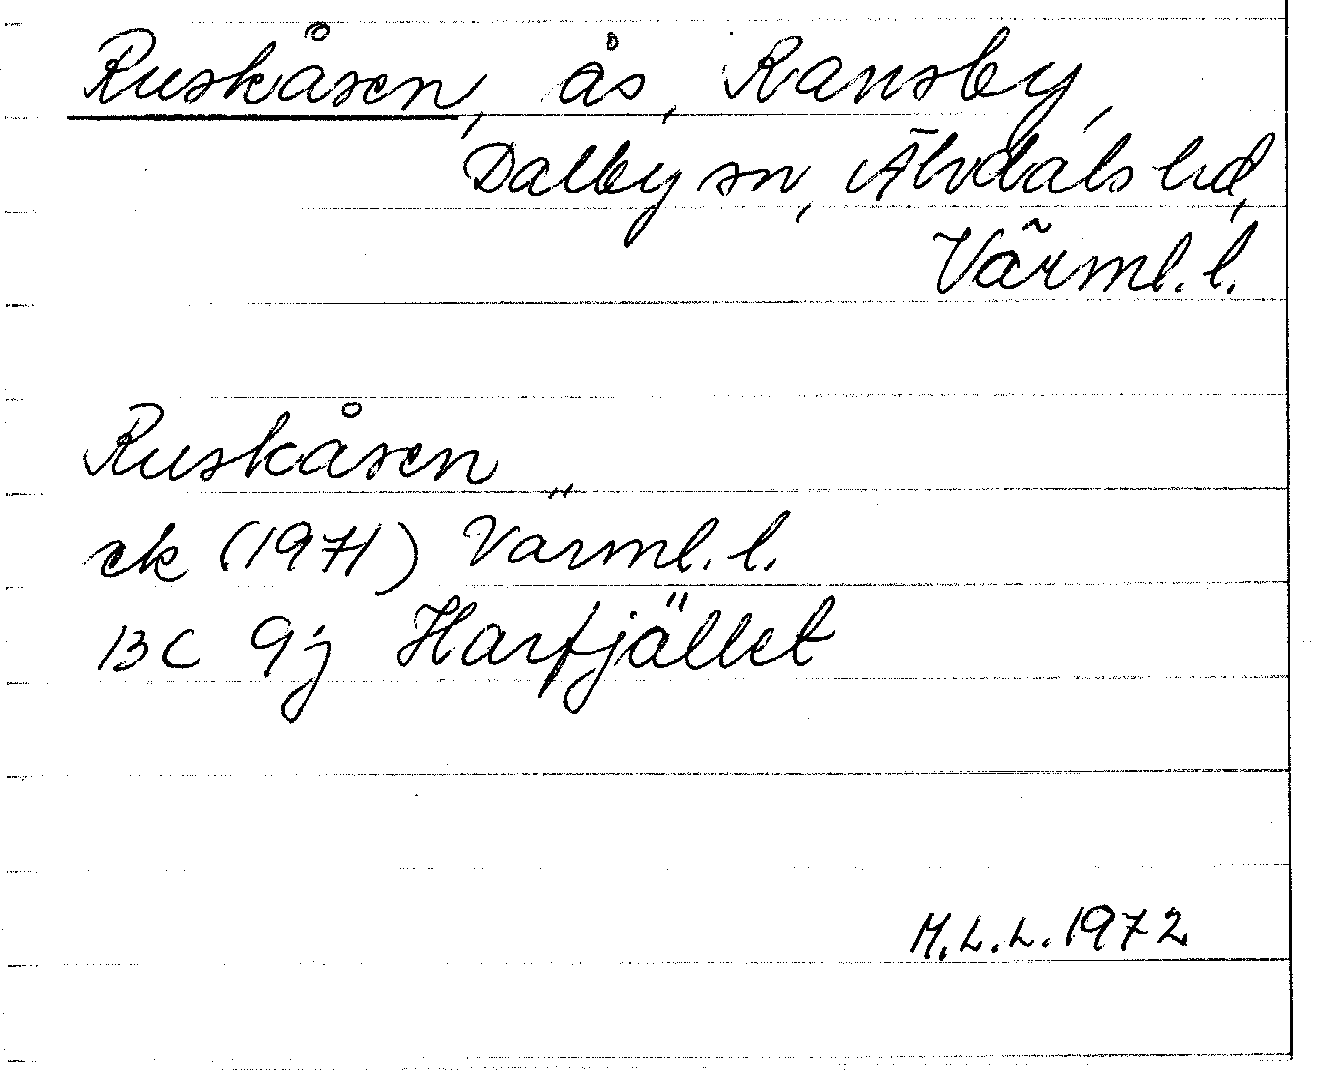 Ruskåsen, ås, Ransby,
Dalby sn, Älvdals hd,
Värml. l.
Ruskåsen
ek (1971) Värml. l.
13C 9j Harfjället
M.L.L. 1972